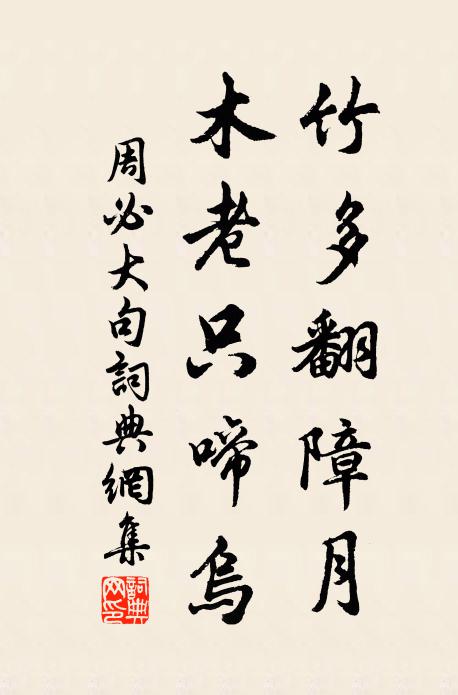 竹多翻障月
木老只啼烏
周必大句詞典網集
詞典网印